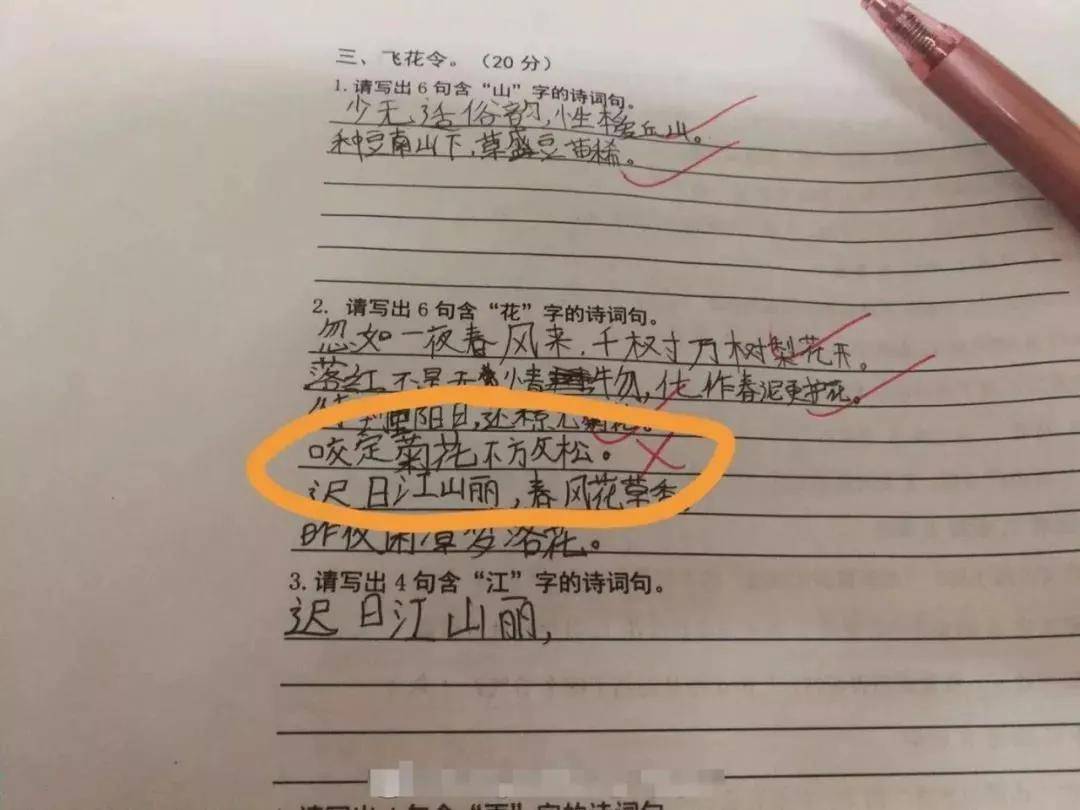 三、飞花令。（20 分）
1. 请写出 6 句含“山”字的诗词句。
少无适俗韵，性本爱丘山。
种豆南山下，草盛豆苗稀。
2. 请写出 6 句含“花”字的诗词句。
忽如一夜春风来，千树万树梨花开。
落红不是无情物，化作春泥更护花。
待到重阳日，还来就菊花。
咬定菊花不放松。
迟日江山丽，春风花草香，
昨夜闲潭梦落花。
3. 请写出 4 句含“江”字的诗词句。
迟日江山丽，
字的诗词句